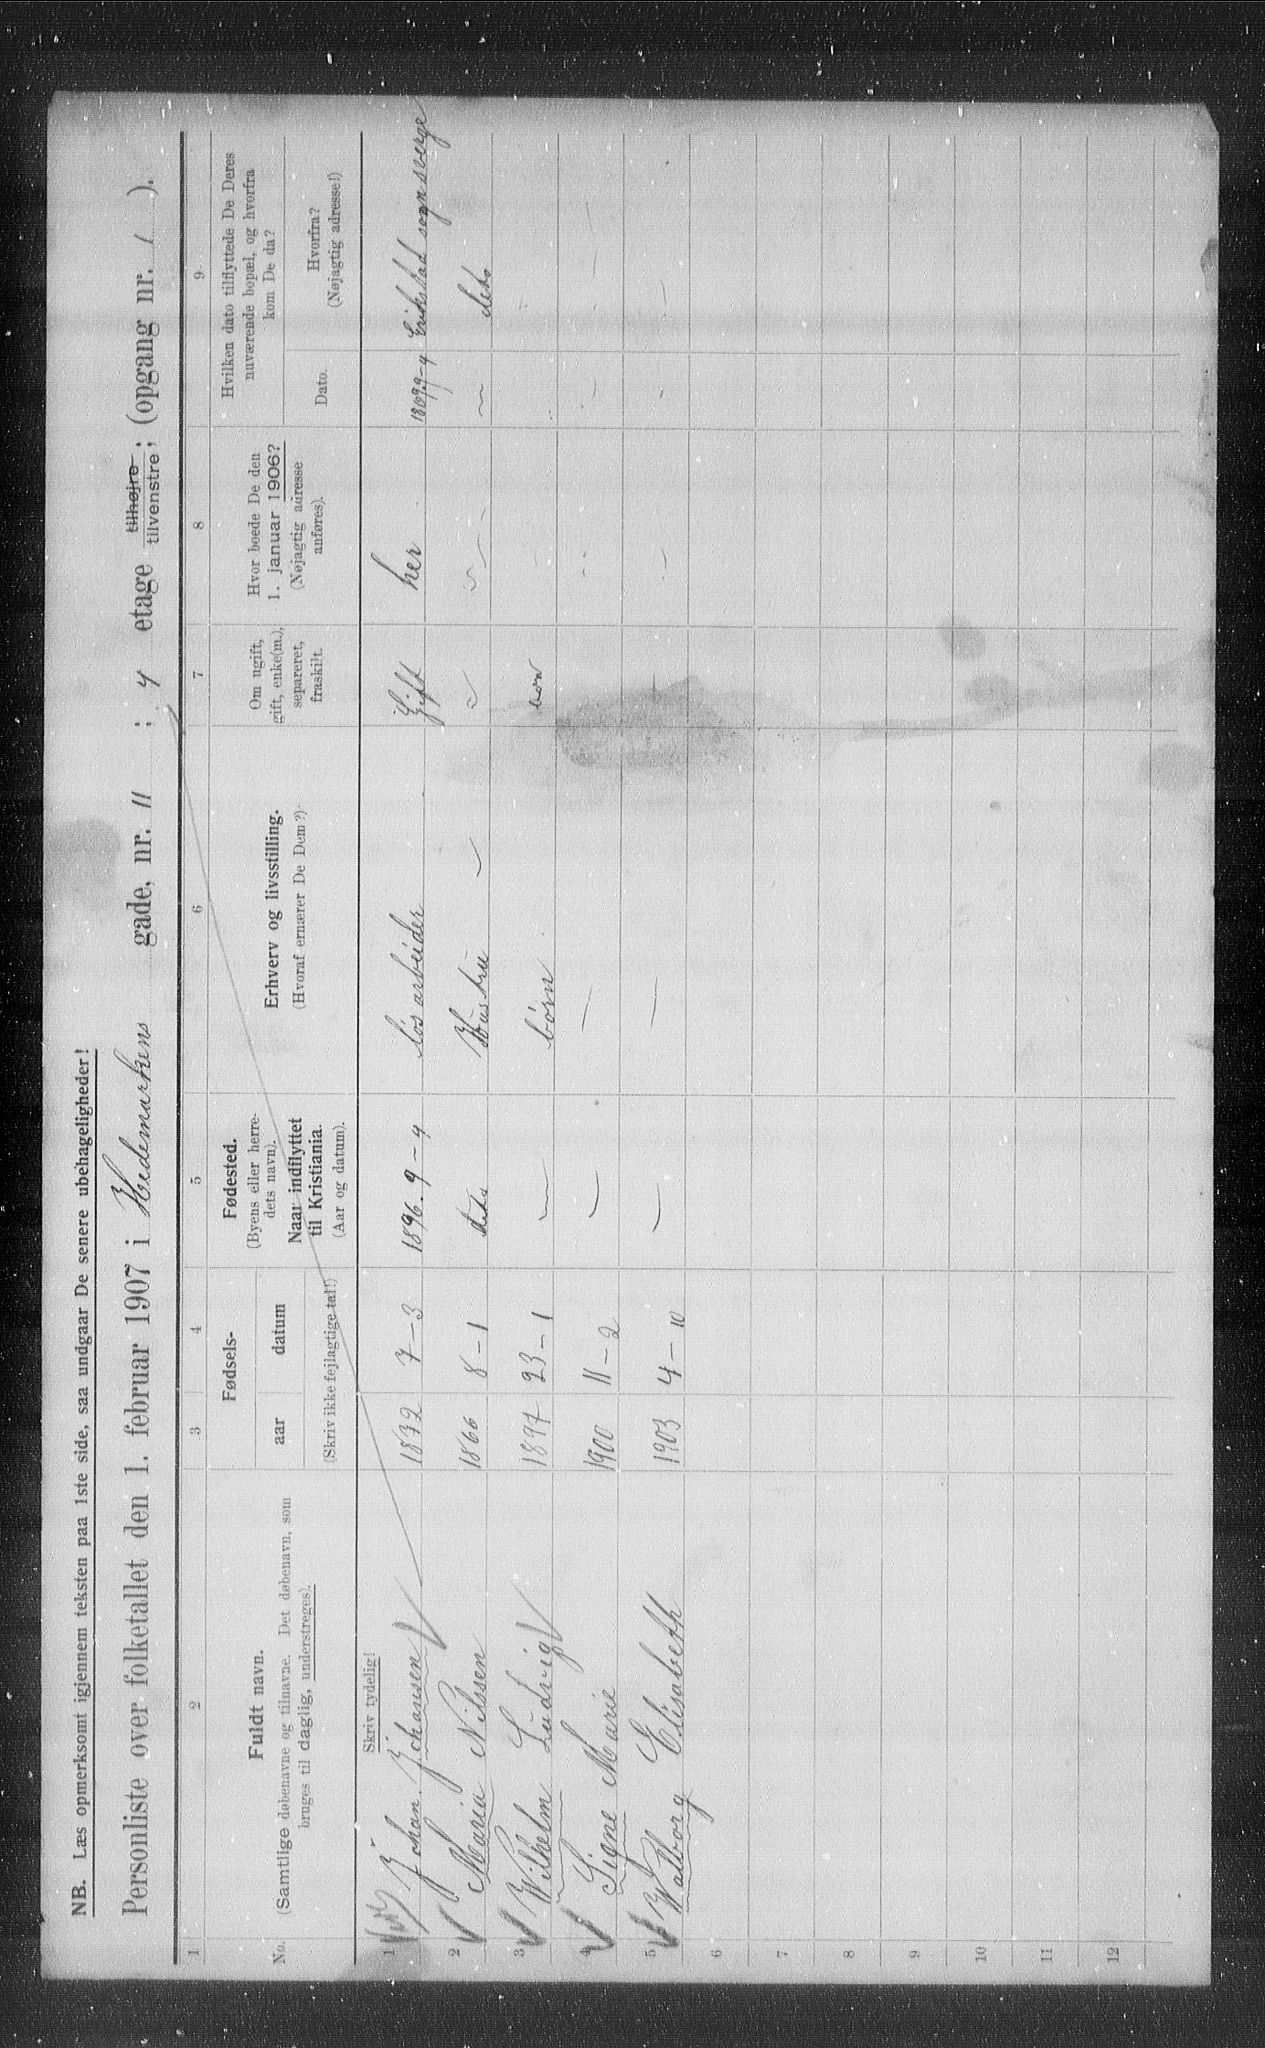 NB. Læs opmerksomt igjennem teksten paa 1ste side, saa undgaar De senere ubehageligheder!
Personliste over folketallet den 1. februar 1907 i Hedemarkens gade, nr. 11 ; 4 etage tilhøjre tilvenstre; (opgang nr. / ).
1 2 3 4 5 6 7 8 9
No.
Fuldt navn.
(Samtlige døbenavne og tilnavne. Det døbenavn, som
bruges til daglig, understreges).
Fødsels-
aar datum
(Skriv ikke fejlagtige tal!)
Fødested.
(Byens eller herre-
dets navn).
Naar indflyttet
til Kristiania.
(Aar og datum).
Erhverv og livsstilling.
(Hvoraf ernærer De Dem?)
Om ugift,
gift, enke(m.),
separeret,
fraskilt.
Hvor boede De den
1. januar 1906?
(Nøjagtig adresse
anføres).
Hvilken dato tilflyttede De Deres
nuværende bopæl, og hvorfra
kom De da?
Dato.
Hvorfra?
(Nøjagtig adresse!)
Skriv tydelig!
1 Johan. Johansen 1872 7-3 1896. 9-4 Løsarbeider Gift her sogn sverge
2 Maria Nilssen 1866 8-1 deto Hustru deto
3 Wilhelm Ludvig 1897 23-1 — børn
4 Signe Marie 1900 11-2 — —
5 Walborg Elisabeth 1903 4-10 — —
6
7
8
9
10
11
12